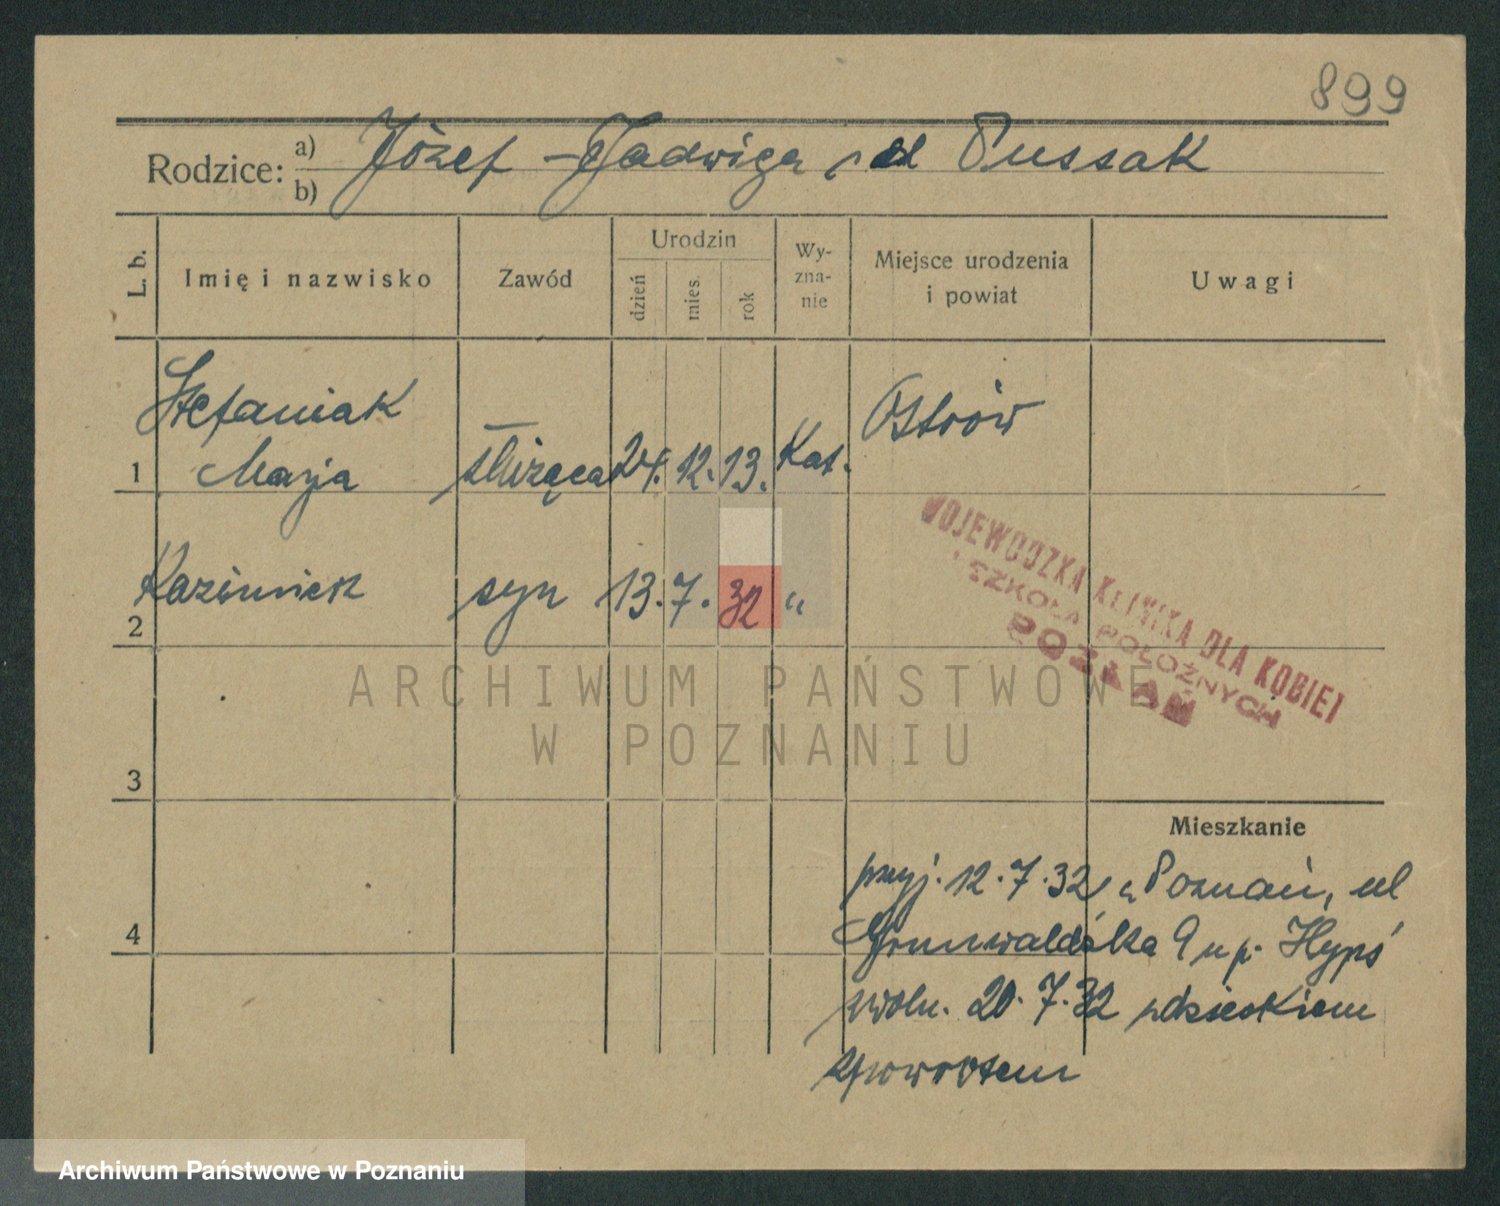 899
Rodzice: a) Józef - Jadwiga, Pussak
b)
L. b.
Imię i nazwisko
Zawód
Urodzin
dzień
mies.
rok
Wy-
zna-
nie
Miejsce urodzenia
i powiat
Uwagi
Stefaniak
1 Marja służąca 24. 12. 13. Kat. Ostrów
2 Kazimierz syn 13. 7. 32 "
WOJEWÓDZKA KLINIKA DLA KOBIET
I SZKOŁA POŁOŻNYCH
POZNAŃ
ARCHIWUM PAŃSTWOWE
W POZNANIU
3
Mieszkanie
4
przyj. 12.7.32 Poznań, ul
Grunwaldzka 9 u p.
zwoln. 20.7.32 z dzieckiem
zpowrotem
Archiwum Państwowe w Poznaniu